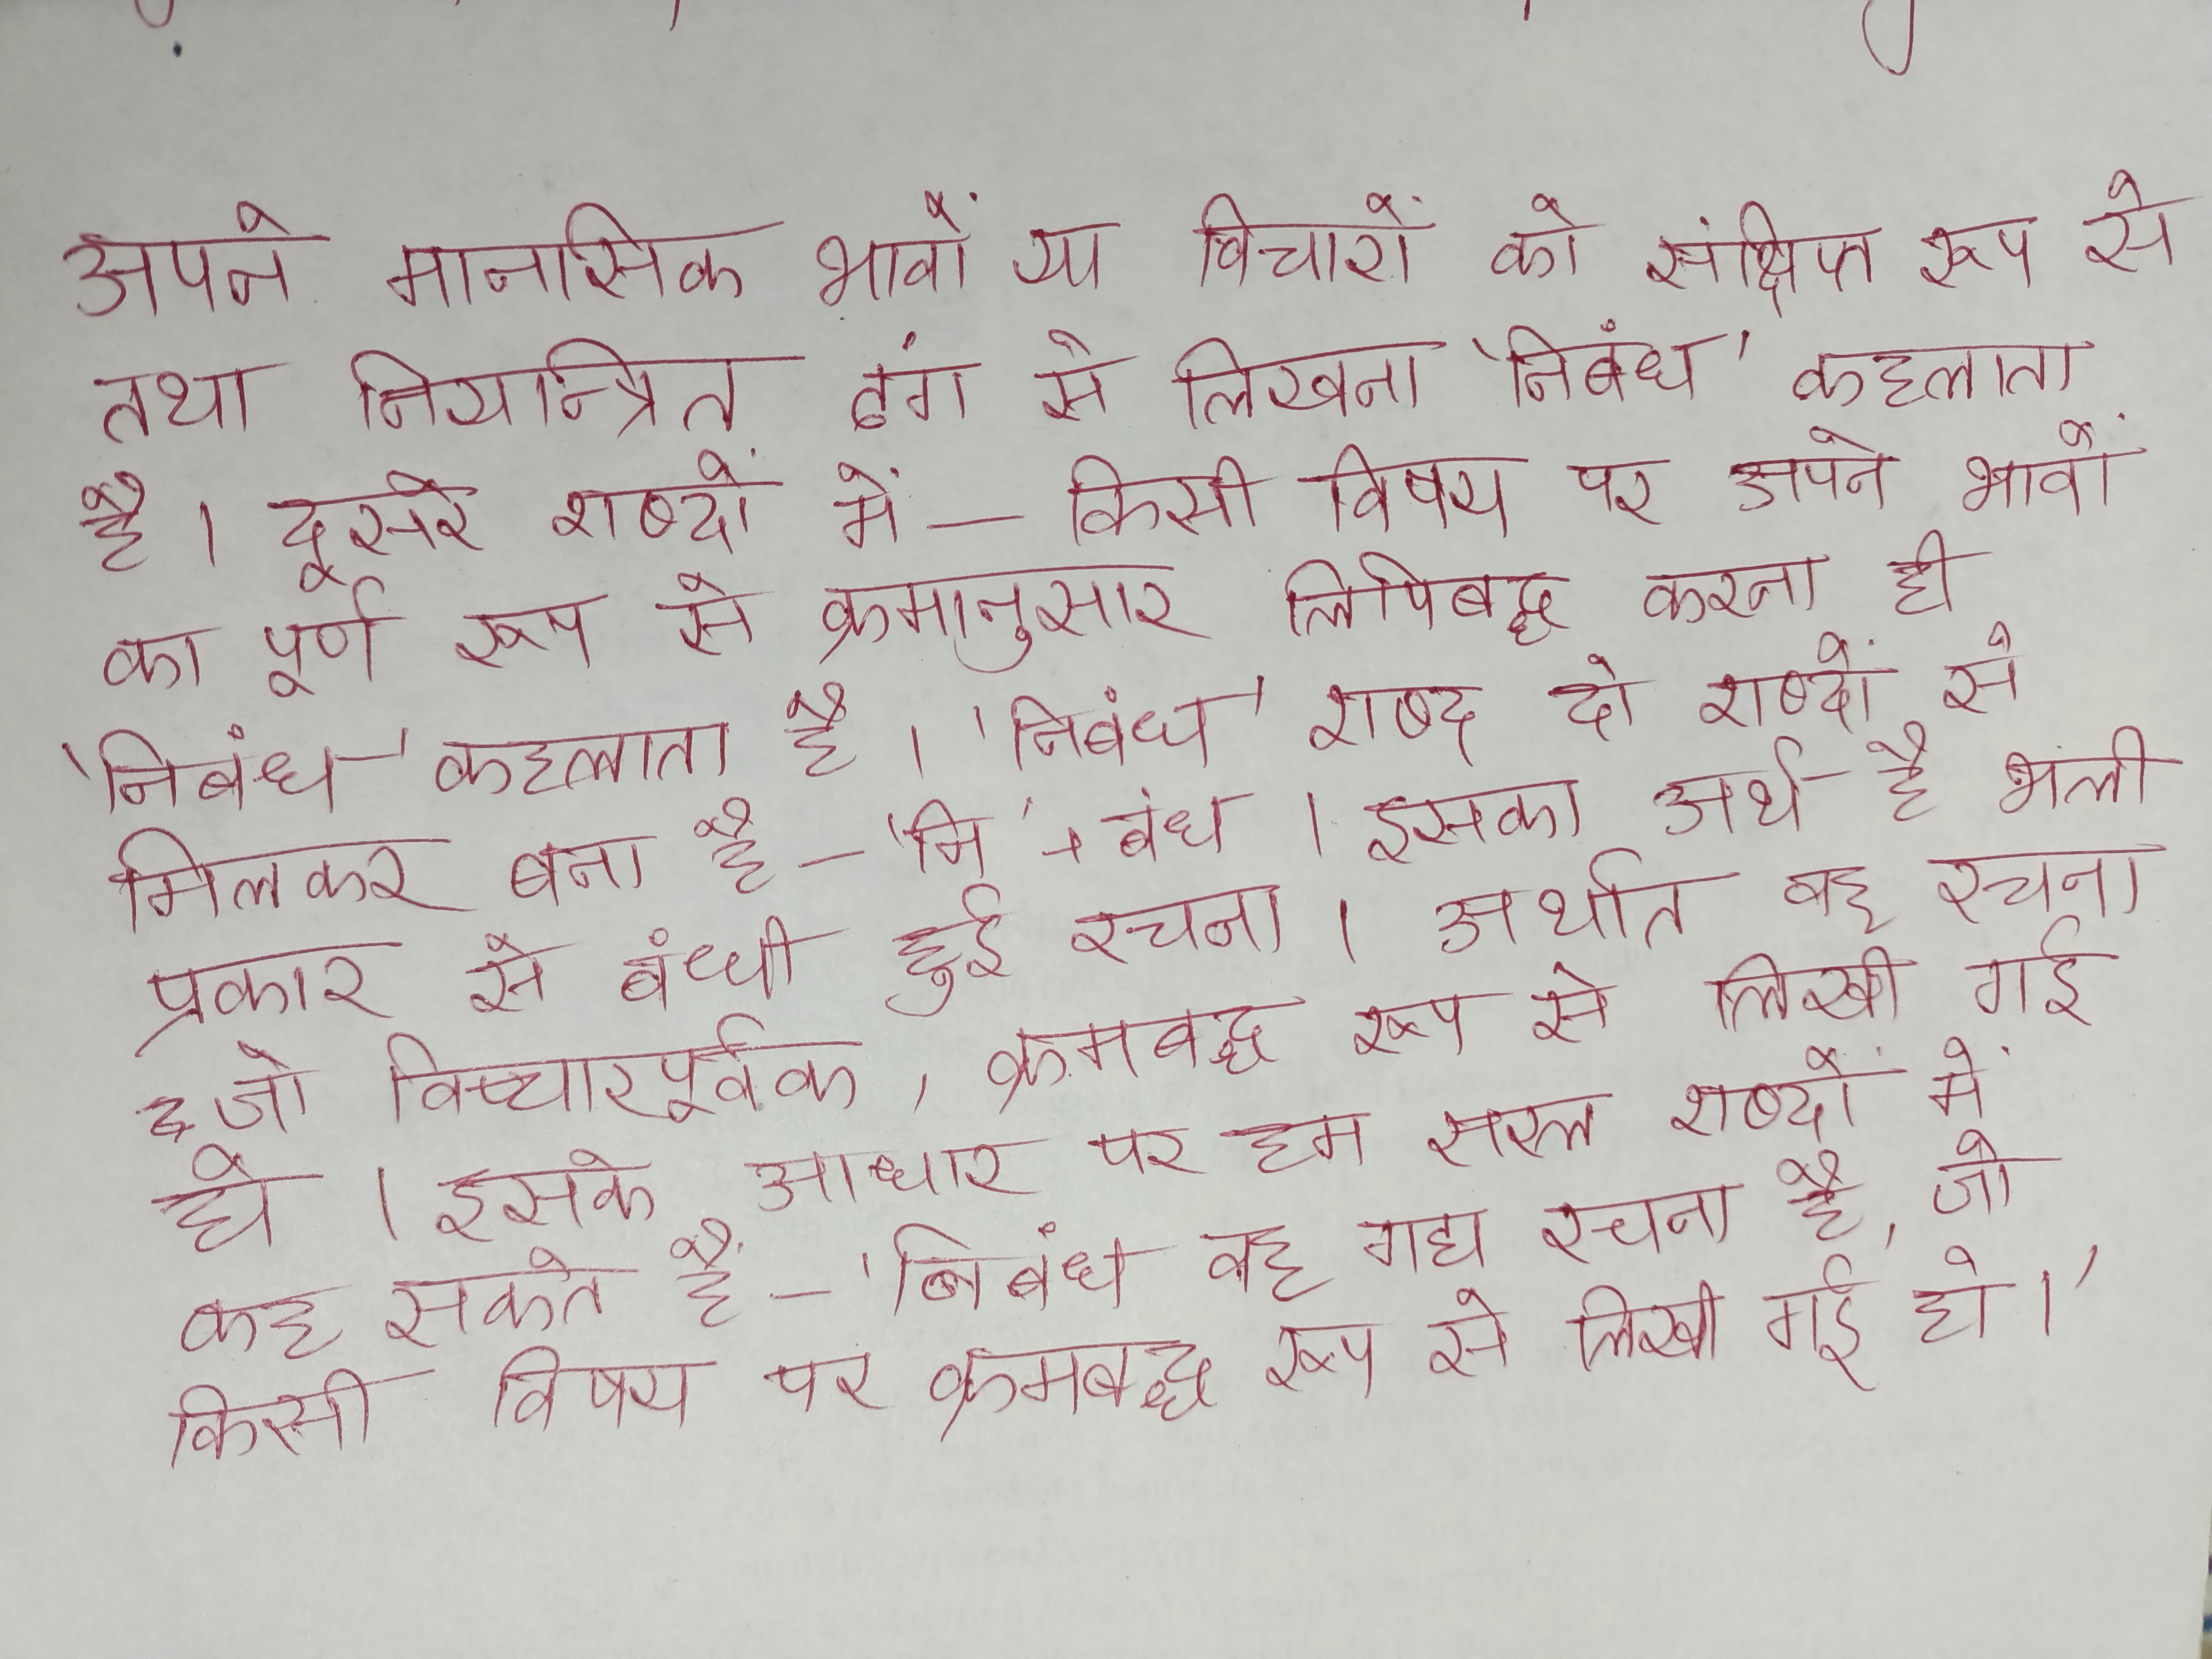 अपने मानसिक भावों या विचारों को संक्षिप्त रूप से
तथा नियन्त्रित ढंग से लिखना 'निबंध' कहलाता
है । दूसरे शब्दों में – किसी विषय पर अपने भावों
का पूर्ण रूप से क्रमानुसार लिपिबद्ध करना ही
'निबंध' कहलाता है । 'निबंध' शब्द दो शब्दों से
मिलकर बना है – 'नि' + बंध । इसका अर्थ है भली
प्रकार से बंधी हुई रचना । अर्थात वह रचना
जो विच्चारपूर्वक , क्रमबद्ध रूप से लिखी गई
हो । इसके आधार पर हम सरल शब्दों में
कह सकते हैं – 'निबंध वह गद्य रचना है, जो
किसी विषय पर क्रमबद्ध रूप से लिखी गई हो ।'